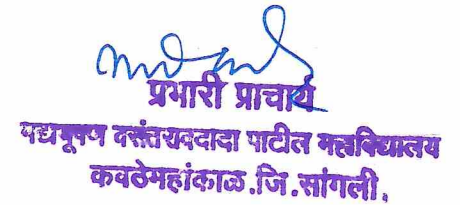 प्रभारी प्राचार्य
पद्मभूषण वसंतरावदादा पाटील महाविद्यालय
कवठेमहांकाळ.जि.सांगली.